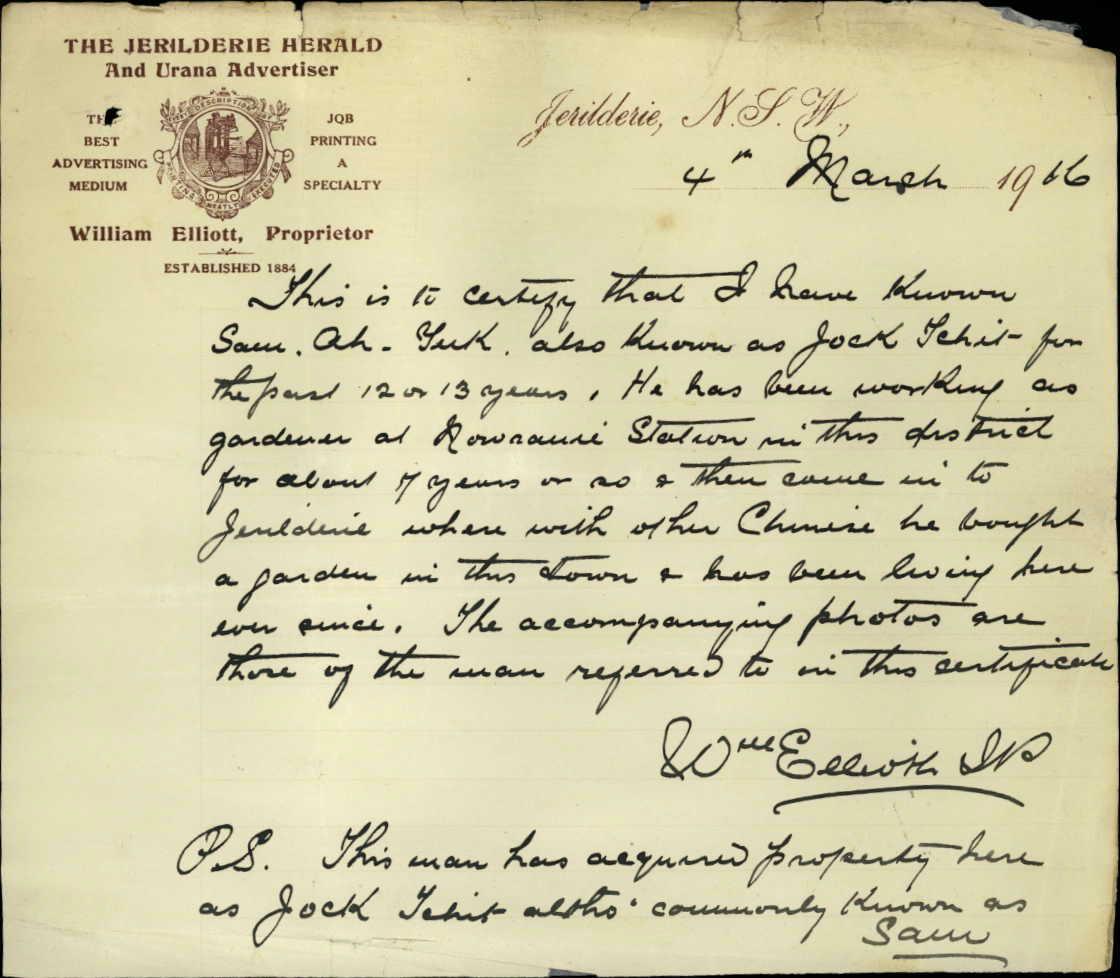 THE JERILDERIE HERALD
And Urana Advertiser
THE
BEST
ADVERTISING
MEDIUM
JOB
PRINTING
A
SPECIALTY
William Elliott, Proprietor
ESTABLISHED 1884
Jerilderie, N.S.W.,
4th March 1916
This is to certify that I have known
Sam. Ah. Yuk. also known as Jock Tchit for
the past 12 or 13 years. He has been working as
gardener at Station in this district
for about 7 years or so & then came in to
Jerilderie where with other Chinese he bought
a garden in this town & has been living here
ever since. The accompanying photos are
those of the man referred to in this certificate
Wm Elliott JP
P.S. This man has acquired property here
as Jock Tchit altho' commonly known as
Sam